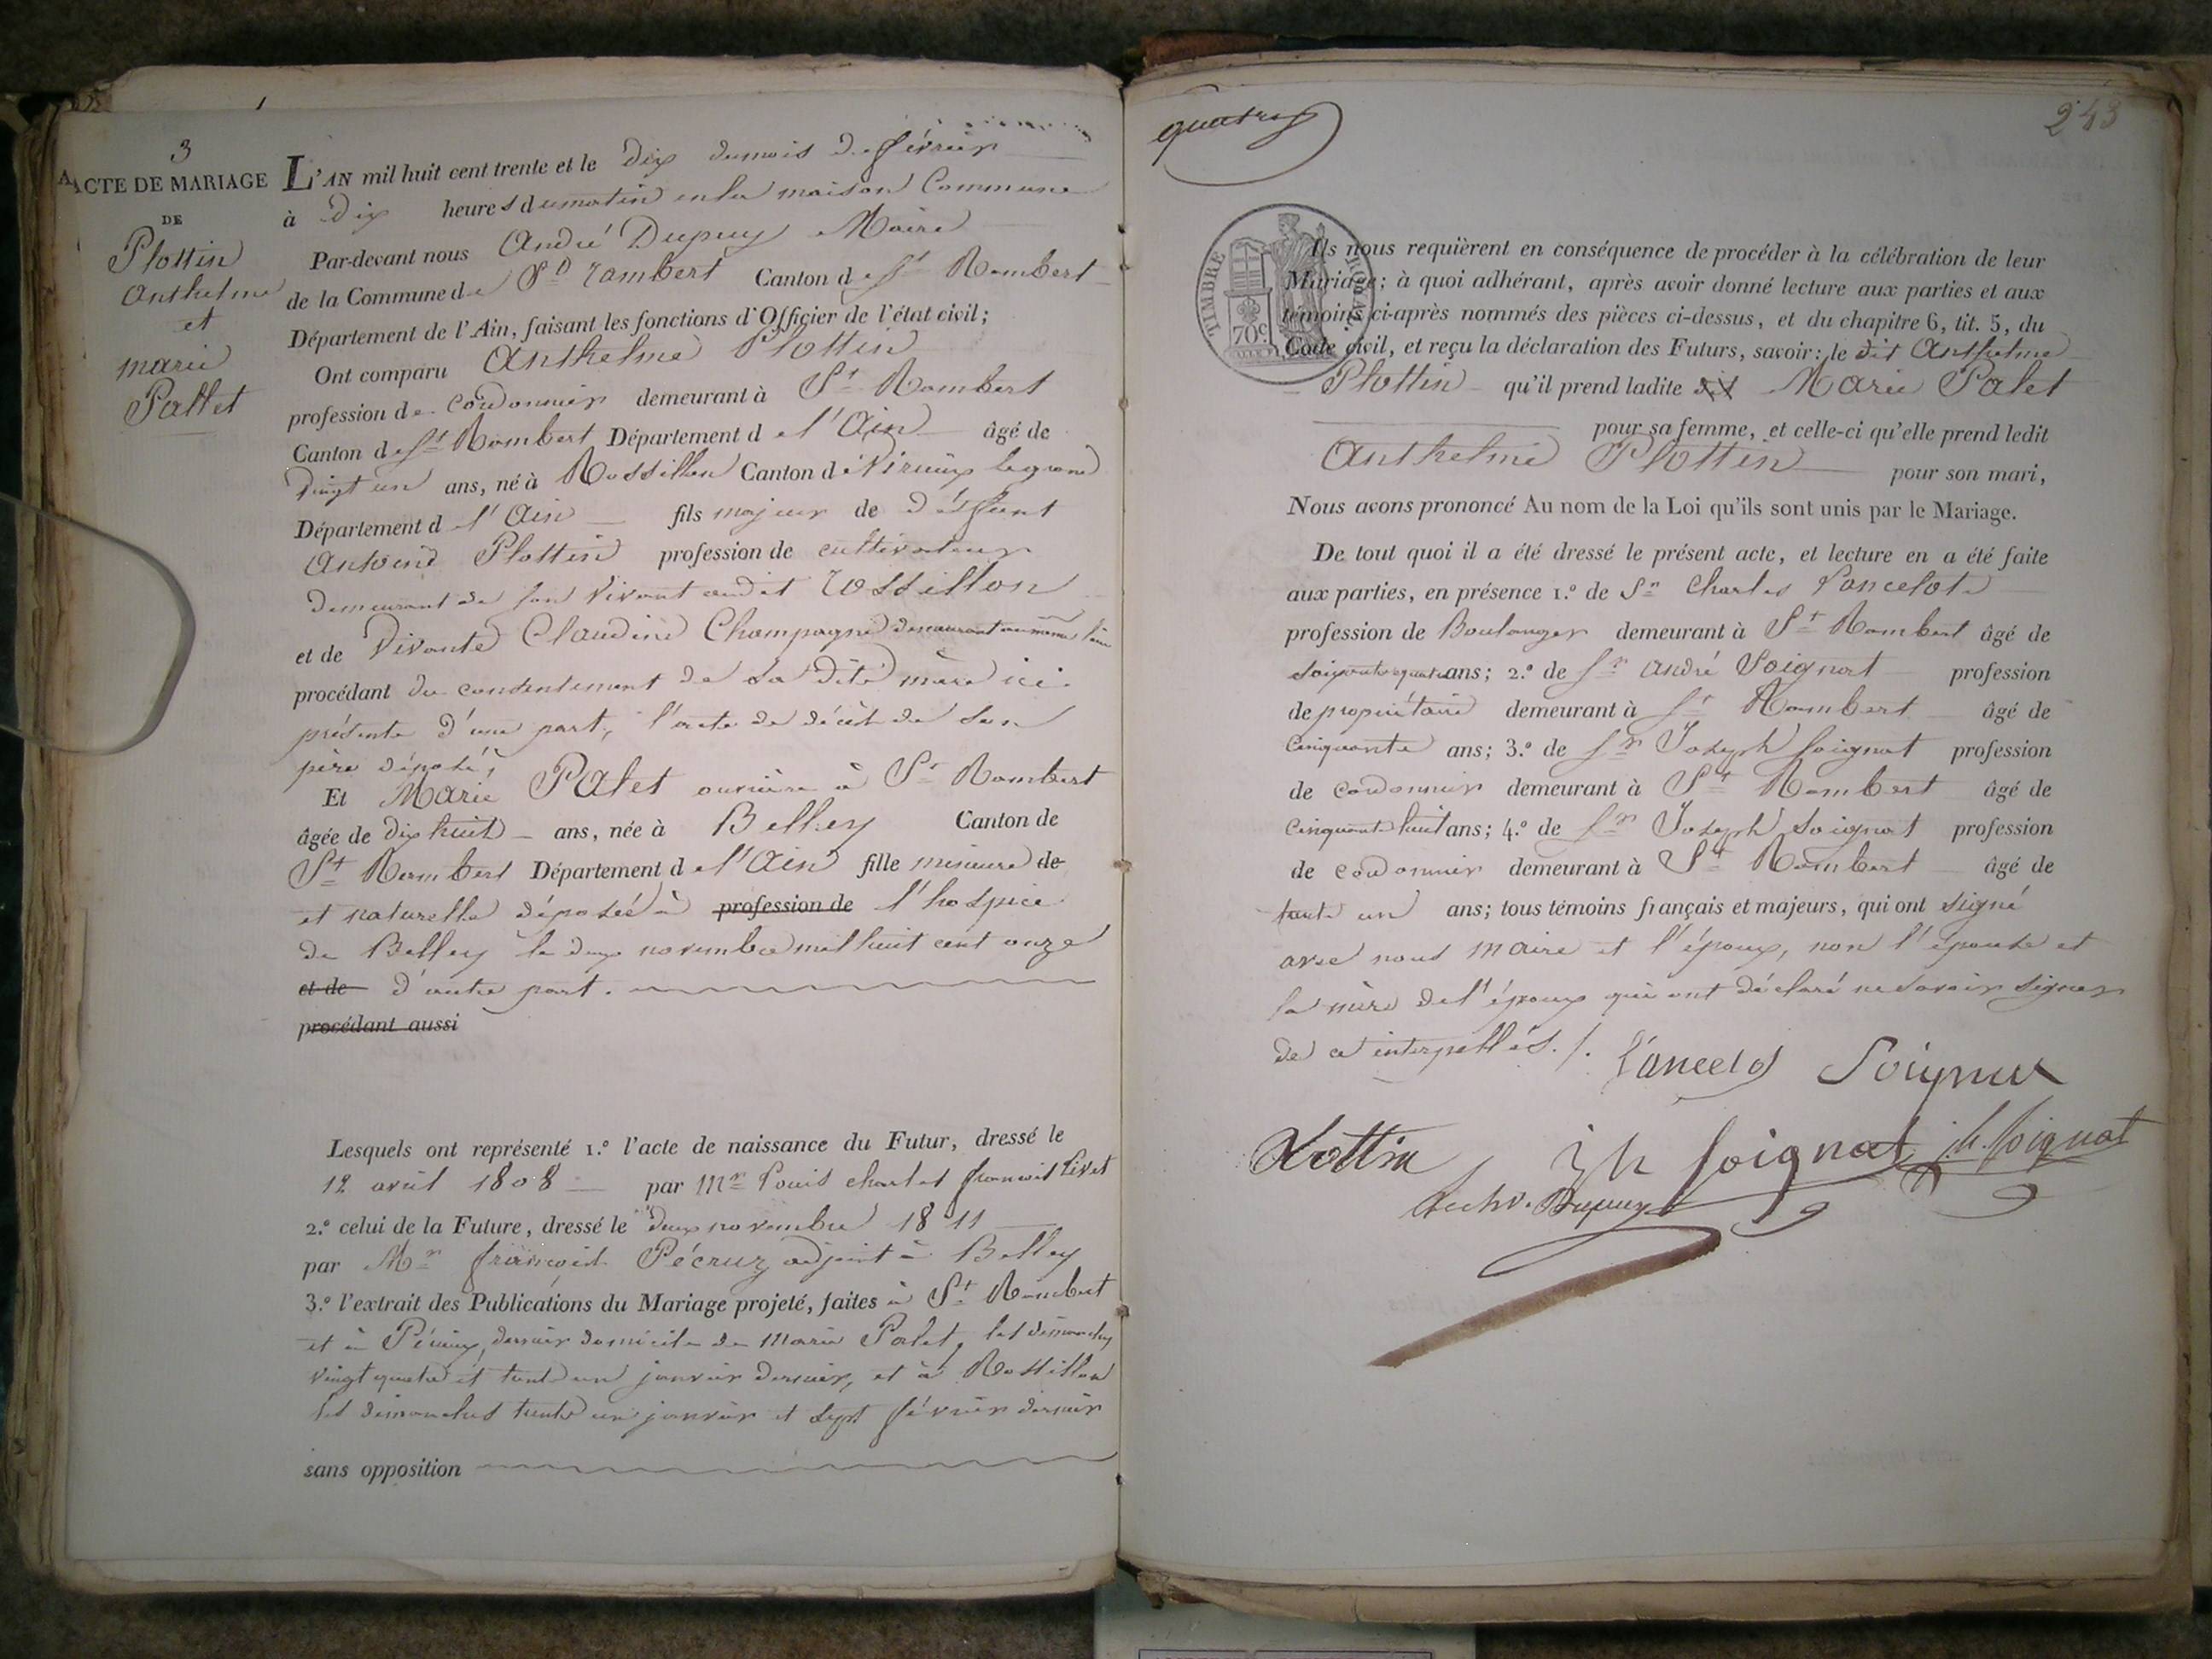 3
ACTE DE MARIAGE
DE
Plottin
Anthelme
et
marie
Pallet
L'AN mil huit cent trente et le dix du mois de février
à dix heures du matin en la maison Commune
Par-devant nous André Dupuy Maire
de la Commune de St rambert Canton de St Rambert
Département de l'Ain, faisant les fonctions d'Officier de l'état civil;
Ont comparu Anthelme Plottin
profession de cordonnier demeurant à St Rambert
Canton de St Rambert Département de l'Ain âgé de
vingt un ans, né à Rossillon Canton de Virieux legrand
Département de l'Ain fils majeur de deffunt
Antoine Plottin profession de cultivateur
demeurant de son vivant audit rossillon
et de vivante Claudine Champagne demeurant au même lieu
procédant du consentement de sa dite mère ici
présente d'une part, l'acte de décès de son
père déposé,
Et Marie Palet ouvrière à St Rambert
âgée de dix huit ans, née à Belley Canton de
St Rambert Département de l'Ain fille mineure de
et naturelle déposée à profession de l'hospice
de Belley le deux novembre mil huit cent onze
et de d'autre part.
procédant aussi
Lesquels ont représenté 1.º l'acte de naissance du Futur, dressé le
12 avril 1808 par Mr Louis charles francois Livet
2.º celui de la Future, dressé le deux novembre 1811
par Mr françois Pécruz adjoint à Belley
3.º l'extrait des Publications du Mariage projeté, faites à St Rambert
et à dernier domicile de Marie Palet, les dimanches
vingt quatre et trente un janvier dernier, et à Rossillon
les dimanches trente un janvier et sept février dernier
sans opposition
243
TIMBRE ROYAL
70c
Ils nous requièrent en conséquence de procéder à la célébration de leur
Mariage; à quoi adhérant, après avoir donné lecture aux parties et aux
témoins ci-après nommés des pièces ci-dessus, et du chapitre 6, tit. 5, du
Code civil, et reçu la déclaration des Futurs, savoir: le dit Anthelme
Plottin qu'il prend ladite dit Marie Palet
pour sa femme, et celle-ci qu'elle prend ledit
Anthelme Plottin pour son mari,
Nous avons prononcé Au nom de la Loi qu'ils sont unis par le Mariage.
De tout quoi il a été dressé le présent acte, et lecture en a été faite
aux parties, en présence 1.º de Sr Charles Lancelot
profession de Boulanger demeurant à St Rambert âgé de
soixante quatre ans; 2.º de Sr André Soignat profession
de propriétaire demeurant à St Rambert âgé de
Cinquante ans; 3.º de Sr Joseph Soignat profession
de cordonnier demeurant à St Rambert âgé de
cinquante huit ans; 4.º de Sr Joseph Soignat profession
de cordonnier demeurant à St Rambert âgé de
trente un ans; tous témoins français et majeurs, qui ont signé
avec nous maire et l'époux, non l'épouse et
la mère de l'époux qui ont déclaré ne savoir signer
de ce interpellés./.
Lancelot Soignat
Plottin jh Soignat jh. Soignat
Dupuy